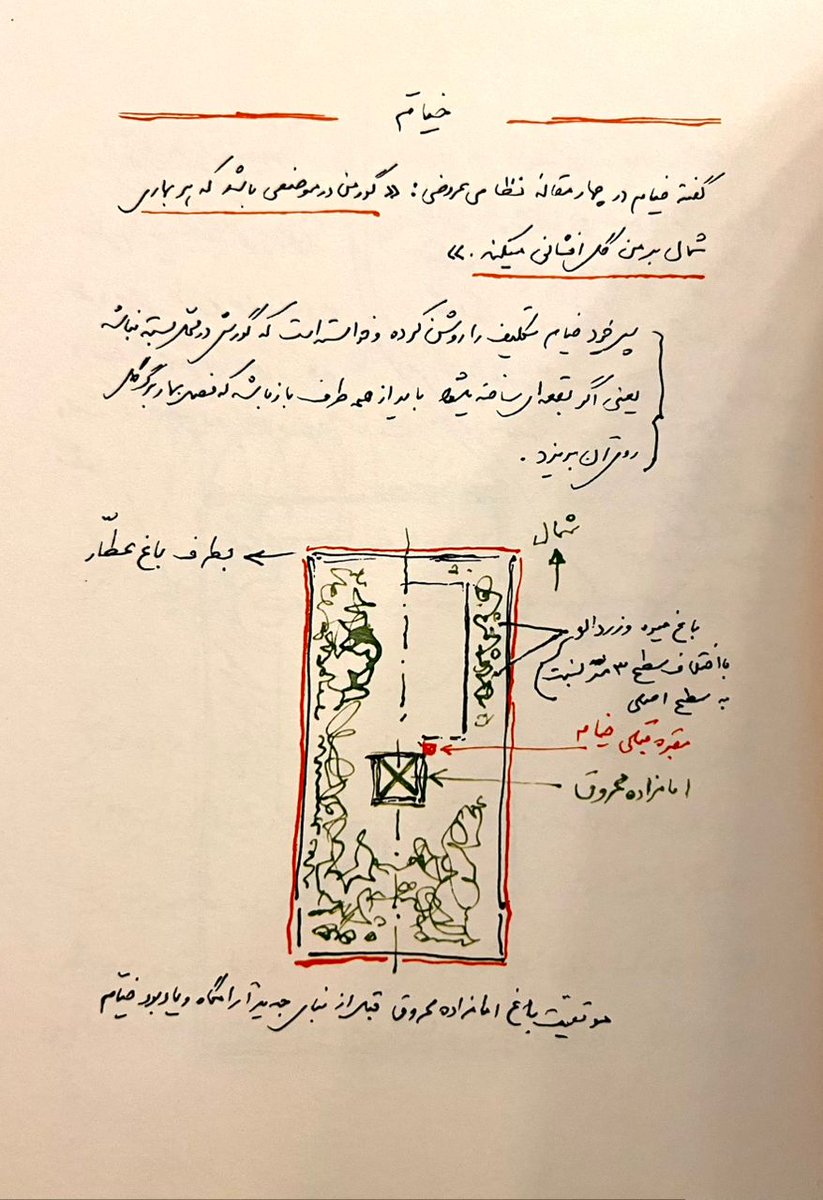 خیام
گفتهٔ خیام در چهار مقالهٔ نظامی عروضی: «گور من در موضعی باشد که هر بهاری
شمال بر من گل افشانی میکند.»
پس خود خیام تکلیف را روشن کرده و خواسته است که گورش در محلی بسته نباشد
یعنی اگر بقعه‌ای ساخته بشود باید از همه طرف باز باشد که فصل بهار برگ گل
روی آن بریزد.
شمال
بطرف باغ عطّار
باغ میوه و زردآلو
با اختلاف سطح ۳ متر نسبت
به سطح اصلی
مقبره قبلی خیام
امامزاده محروق
موقعیّت باغ امامزاده محروق قبل از بنای جدید آرامگاه و یادبود خیّام